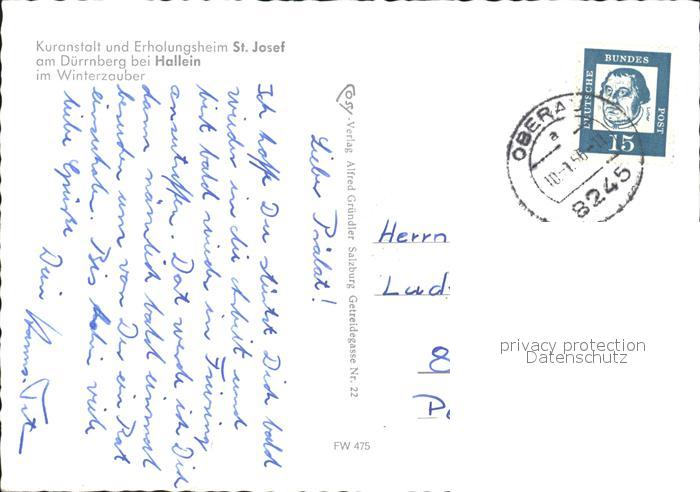 Kuranstalt und Erholungsheim St. Josef
am Dürrnberg bei Hallein
im Winterzauber
Lieber Prälat!
Ich hoffe Du stürzt Dich bald
wieder in die Arbeit und
bist bald wieder in Freising
anzutreffen. Dort werde ich Dich
dann nämlich bald einmal
besuchen um von Dir ein Rat
einzuholen. Bis dahin viele
liebe Grüße
Dein
Cosy-Verlag Alfred Gründler Salzburg Getreidegasse Nr. 22
FW 475
DEUTSCHE
BUNDES
POST
Luther
15
OBERA
a
8245
Herrn
Lud
privacy protection
Datenschutz